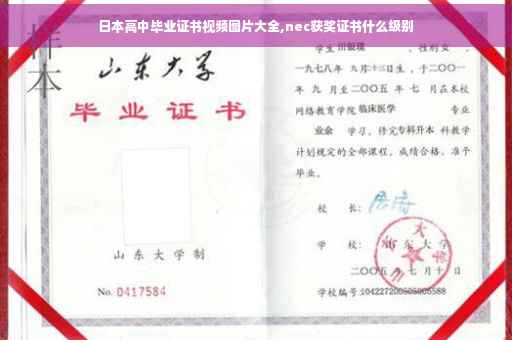 日本高中毕业证书视频图片大全,nec获奖证书什么级别
样本
山东大学
毕业证书
山东大学制
No. 0417584
学生 田俊瑞 ，性别 女 ，
一九七八年 九月十三日生，于二〇〇一
年 九 月至二〇〇五 年 七 月在本校
网络教育学院 临床医学 专业
业余 学习，修完 专科升本 科教学
计划规定的全部课程，成绩合格，准予
毕业。
校 长：
学 校： 山东大学
二〇〇五 年 七 月 十 日
学校编号: 104227200505005588